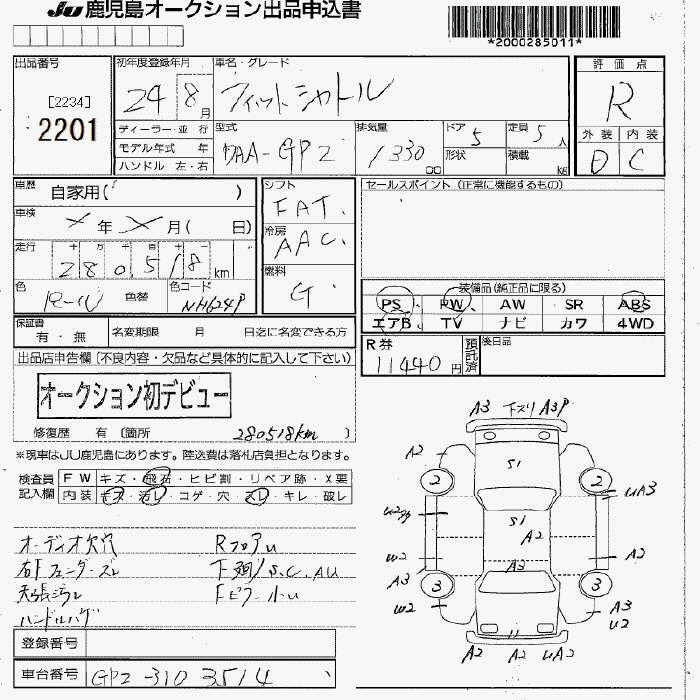 JU 鹿児島オークション出品申込書
*2000285011*
出品番号
[2234]
2201
初年度登録年月
24 8 月
車名・グレード
フィットシャトル
評価点
R
外装 内装
D C
ディーラー・並 行
モデル年式 年
ハンドル 左・右
型式
DAA-GP2
排気量
1330
cc
ドア 5
形状
定員 5 人
積載 kg
車歴
自家用( )
車検
年 月( 日)
走行
十 万 千 百 十
280518 km
色
パール
色替
色コード
NH624P
シフト
FAT
冷房
AAC
燃料
G
セールスポイント (正常に機能するもの)
装備品(純正品に限る)
PS PW AW SR ABS
エアB TV ナビ カワ 4WD
保証書
有・無
名変期限 月 日迄に名変できる方
R券
11440 円
預託済
後日品
出品店申告欄 (不良内容・欠品など具体的に記入して下さい)
オークション初デビュー
修復歴 有 〔箇所 280518km 〕
※現車はJU鹿児島にあります。陸送費は落札店負担となります。
検査員
記入欄
FW キズ・飛石・ヒビ割・リペア跡・X要
内装 キズ・汚レ・コゲ・穴・スレ・キレ・破レ
オーディオ欠穴
RフロアU
右Fフェンダーズレ
下廻/S.C.AU
天張汚レ
Fピラー小U
ハンドルハゲ
登録番号
車台番号
GP2-310 3514
A3 下スリ A3P
A2
S1
2 2
UA3
U2
S1
A2
W2
A2
A2
A3
3 3
W2
A3
U2
A2 A2 UA2